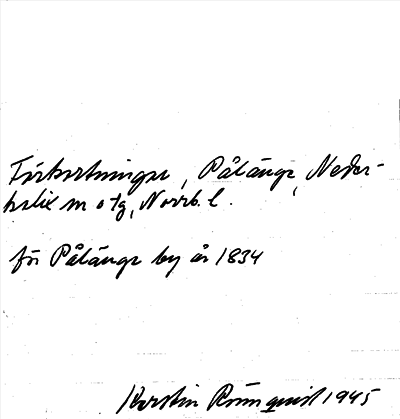 Förkortningar, Pålänge, Neder-
kalix sn o tg, Norrb. l.
för Pålänge by år 1834
Kerstin Rönnquist 1945